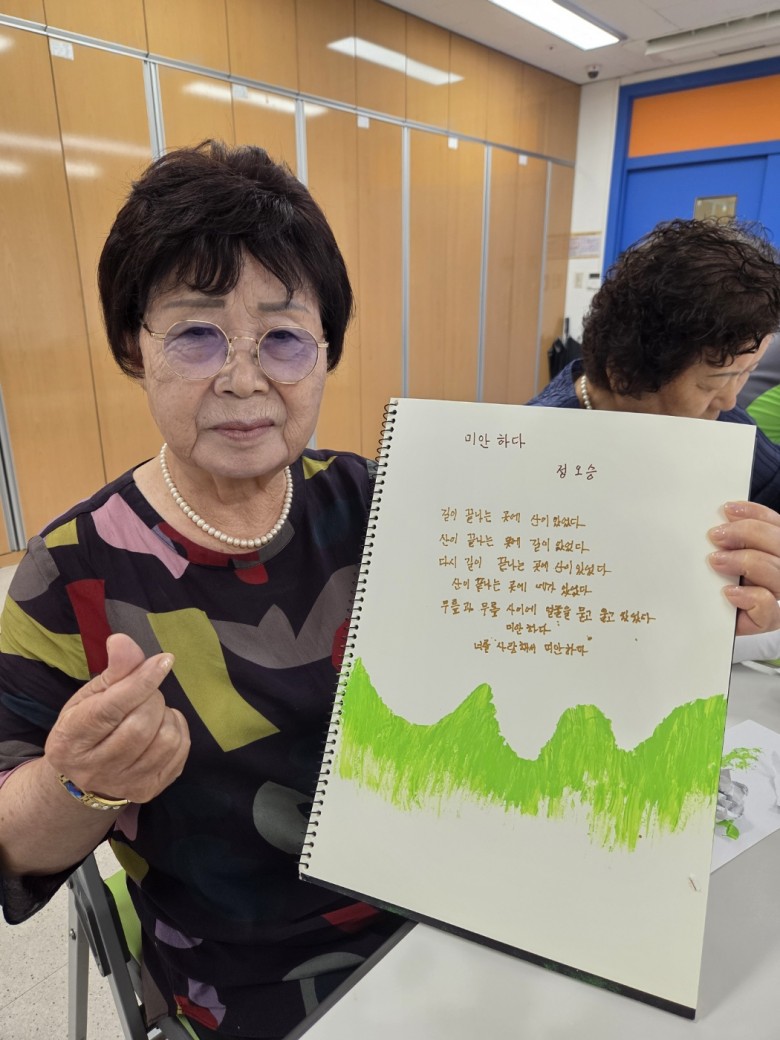 미안 하다
정 오 승
길이 끝나는 곳에 산이 있었다
산이 끝나는 곳에 길이 있었다
다시 길이 끝나는 곳에 산이 있었다
산이 끝나는 곳에 네가 있었다
무릎과 무릎 사이에 얼굴을 묻고 울고 있었다
미안 하다
너를 사랑해서 미안하다